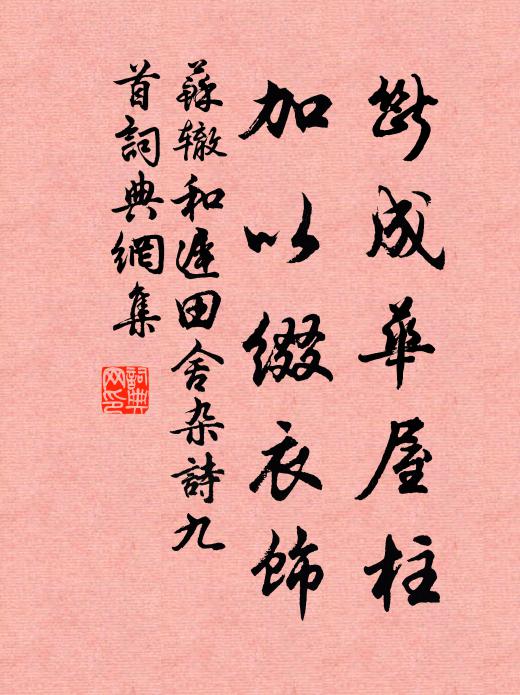 斷成華屋柱
加以綴衣飾
蘇轍和遲田舍杂詩九
首詞典網集
詞典网印